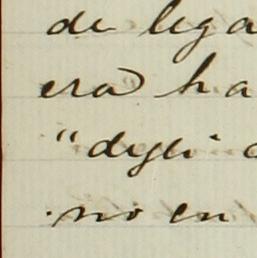 de lega
era ha
"dyli
no en